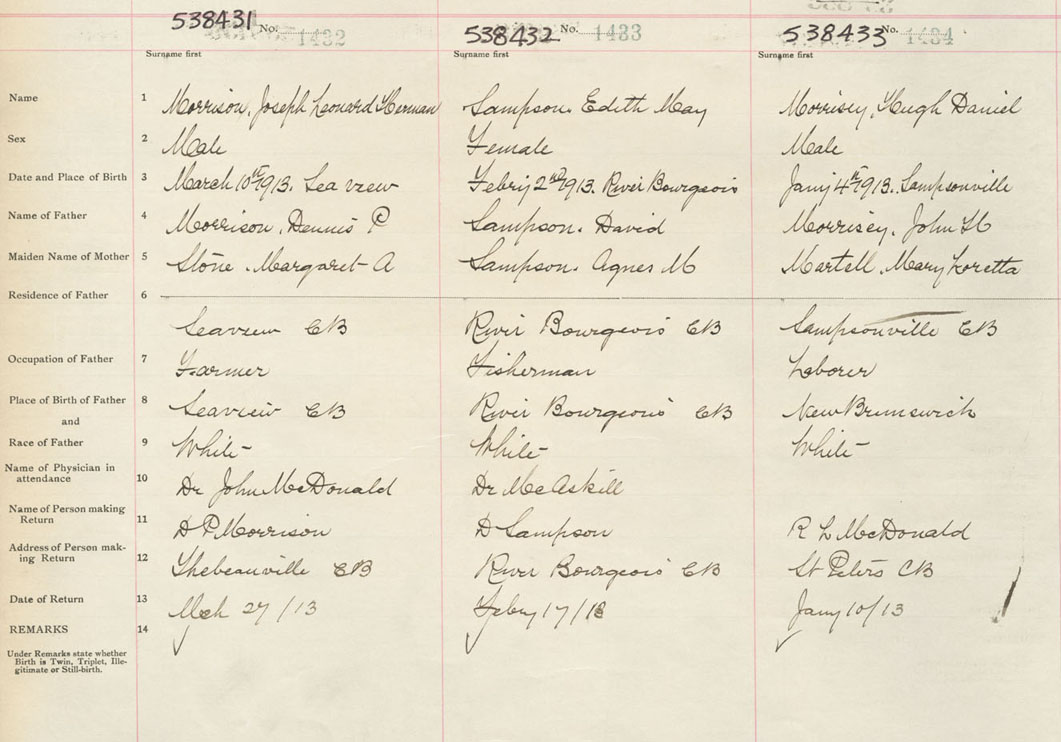 538431 No. 1432 538432 No. 1433 538433 No. 1434
Surname first Surname first Surname first
Name 1 Morrison, Joseph Leonard Herman Sampson. Edith May Morrisey, Hugh Daniel
Sex 2 Male Female Male
Date and Place of Birth 3 March 10th 1913. Sea view Febry 2nd 1913. River Bourgeois Jany 4th 1913. Sampsonville
Name of Father 4 Morrison, Dennis P Sampson. David Morrisey. John H
Maiden Name of Mother 5 Stone. Margaret A Sampson. Agnes M Martell. Mary Loretta
Residence of Father 6
Seaview CB River Bourgeois CB Sampsonville CB
Occupation of Father 7 Farmer Fisherman Laborer
Place of Birth of Father 8 Seaview CB River Bourgeois CB New Brunswick
and
Race of Father 9 White White White
Name of Physician in
attendance 10 Dr John McDonald Dr McAskill
Name of Person making
Return 11 D P Morrison D Sampson R L McDonald
Address of Person mak-
ing Return 12 Thebeauville CB River Bourgeois CB St Peters CB
Date of Return 13 Mch 27/13 Febry 17/13 Jany 10/13
REMARKS 14
Under Remarks state whether
Birth is Twin, Triplet, Ille-
gitimate or Still-birth.